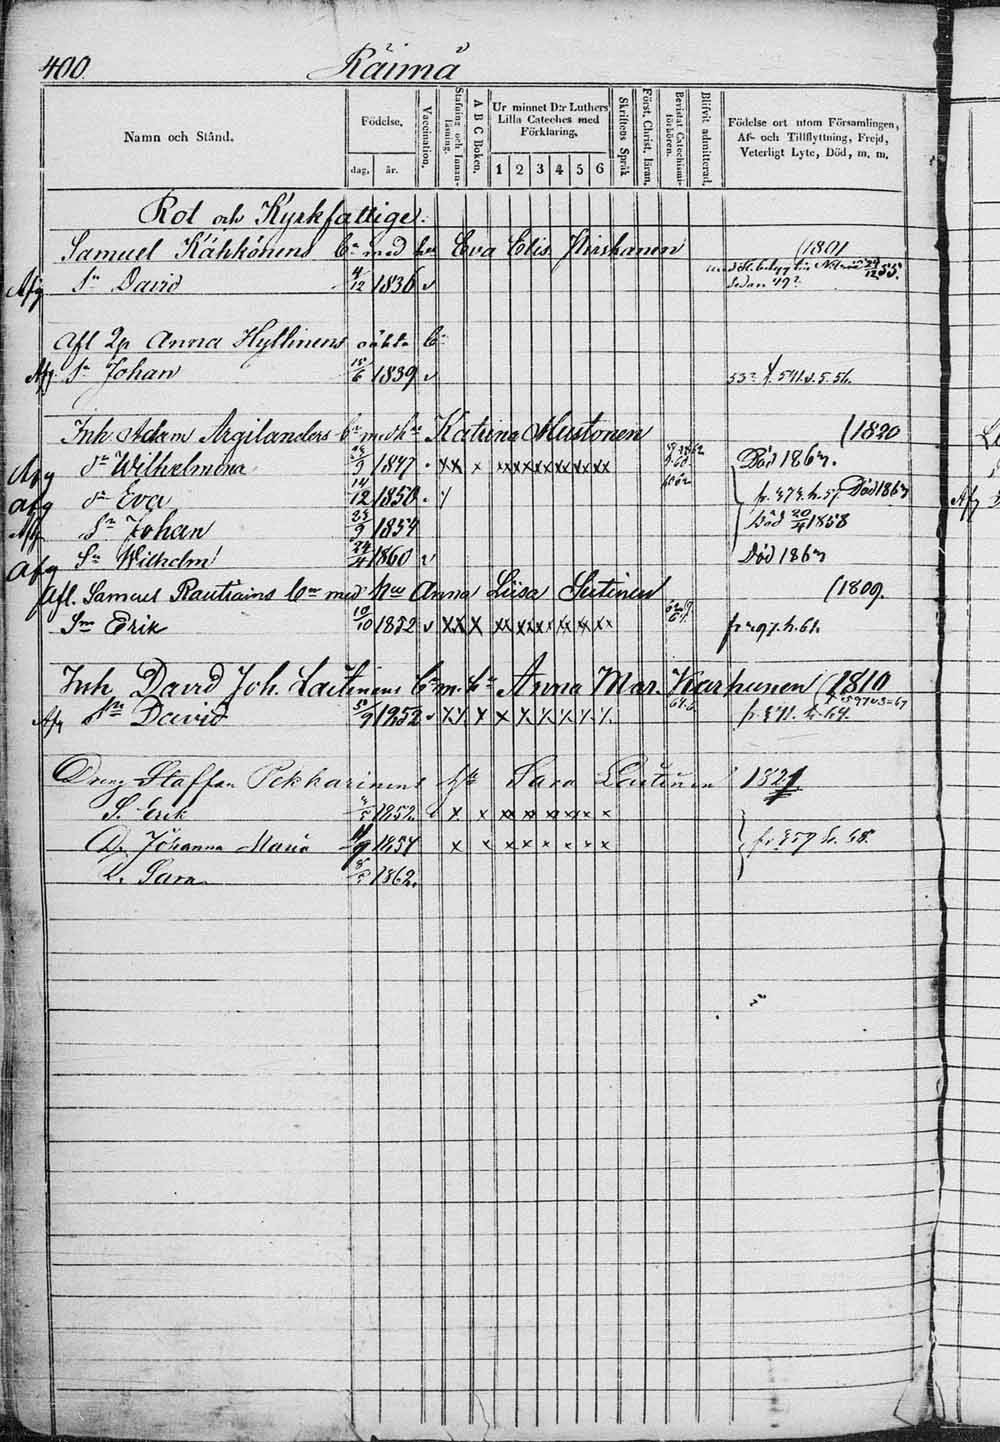 400.
Räimä
Namn och Stånd.
Födelse,
dag, år.
Vaccination.
Stafning och Innanläsning.
A B C Boken.
Ur minnet D:r Luthers Lilla Cateches med Förklaring.
1 2 3 4 5 6
Skriftens Språk
Först. Christ. läran.
Bevistat Catechismiförhören.
Blifvit admitterad.
Födelse ort utom Församlingen, Af- och Tillflyttning, Frejd, Veterligt Lyte, Död, m. m.
Rot och Kyrkfattige.
Samuel Kähkönens Bn med hu Eva Elis. Hirskanen (1801
Afg Sn David 4/12 1836 v
Afl Anna Hyttinens oäkta Bn
Afg Sn Johan 1839 v 53
Inh Adam Argilanders bn med hu Katrina Mustonen (1820
Afg dr Wilhelmina 1847 xx x xxxxxxxxxxx Död 1867.
Afg dr Eva 14/12 1850. Död 1867
Afg Sn Johan 23/9 1854 Död 20/4 1858
Afg Sn Wilhelm 24/4 1860 v Död 1867
Afl. Samuel Rautiains bn med hu Anna Liisa Sutinen (1809.
Son Erik 10/10 1852 v xx x xx xxx x xx xx fr 297. h. 61.
Inh David Joh. Lautinens bn m. hu Anna Mar. Karhunen (1810
Afg Son David 1852 v x x x x x x x x x fr. 64.
Dreng Staffan Pekkarinens hu Sara Lautinen 1821
S. Erik 1852. x x xx x x x x x
D. Johanna Maria 11/9 1857 x x x x x x x x
D. Sara 1862.